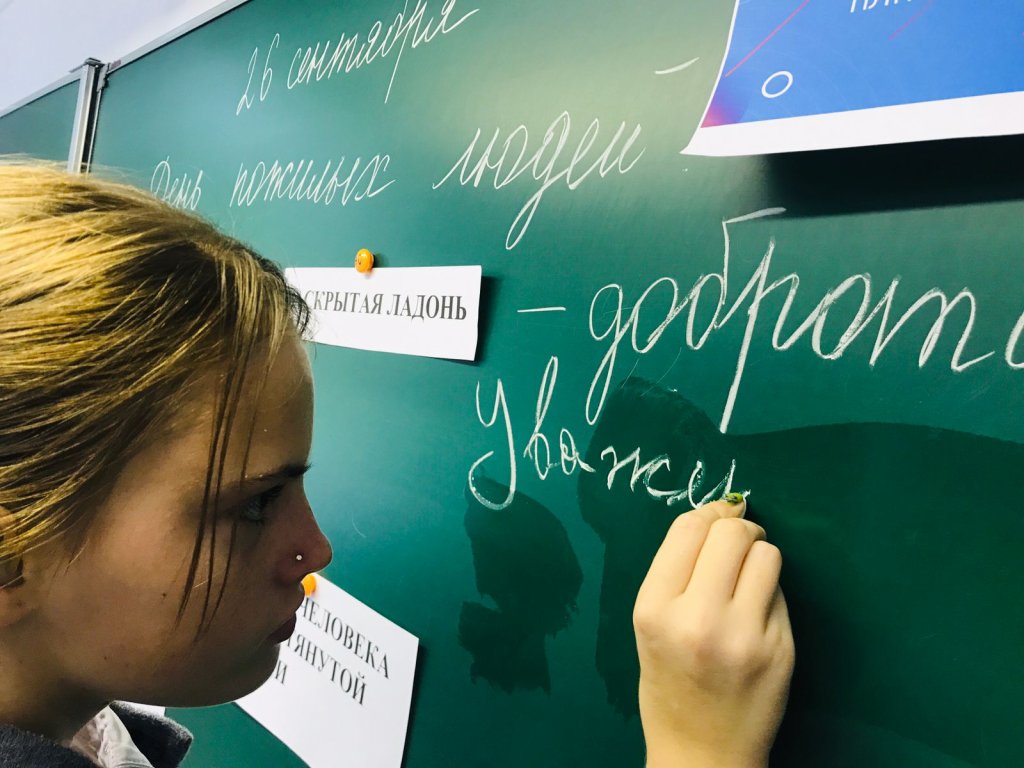 26 сентября
День пожилых людей -
СКРЫТАЯ ЛАДОНЬ
- доброта
Уважи
ЧЕЛОВЕКА
ТЯНУТОЙ
И